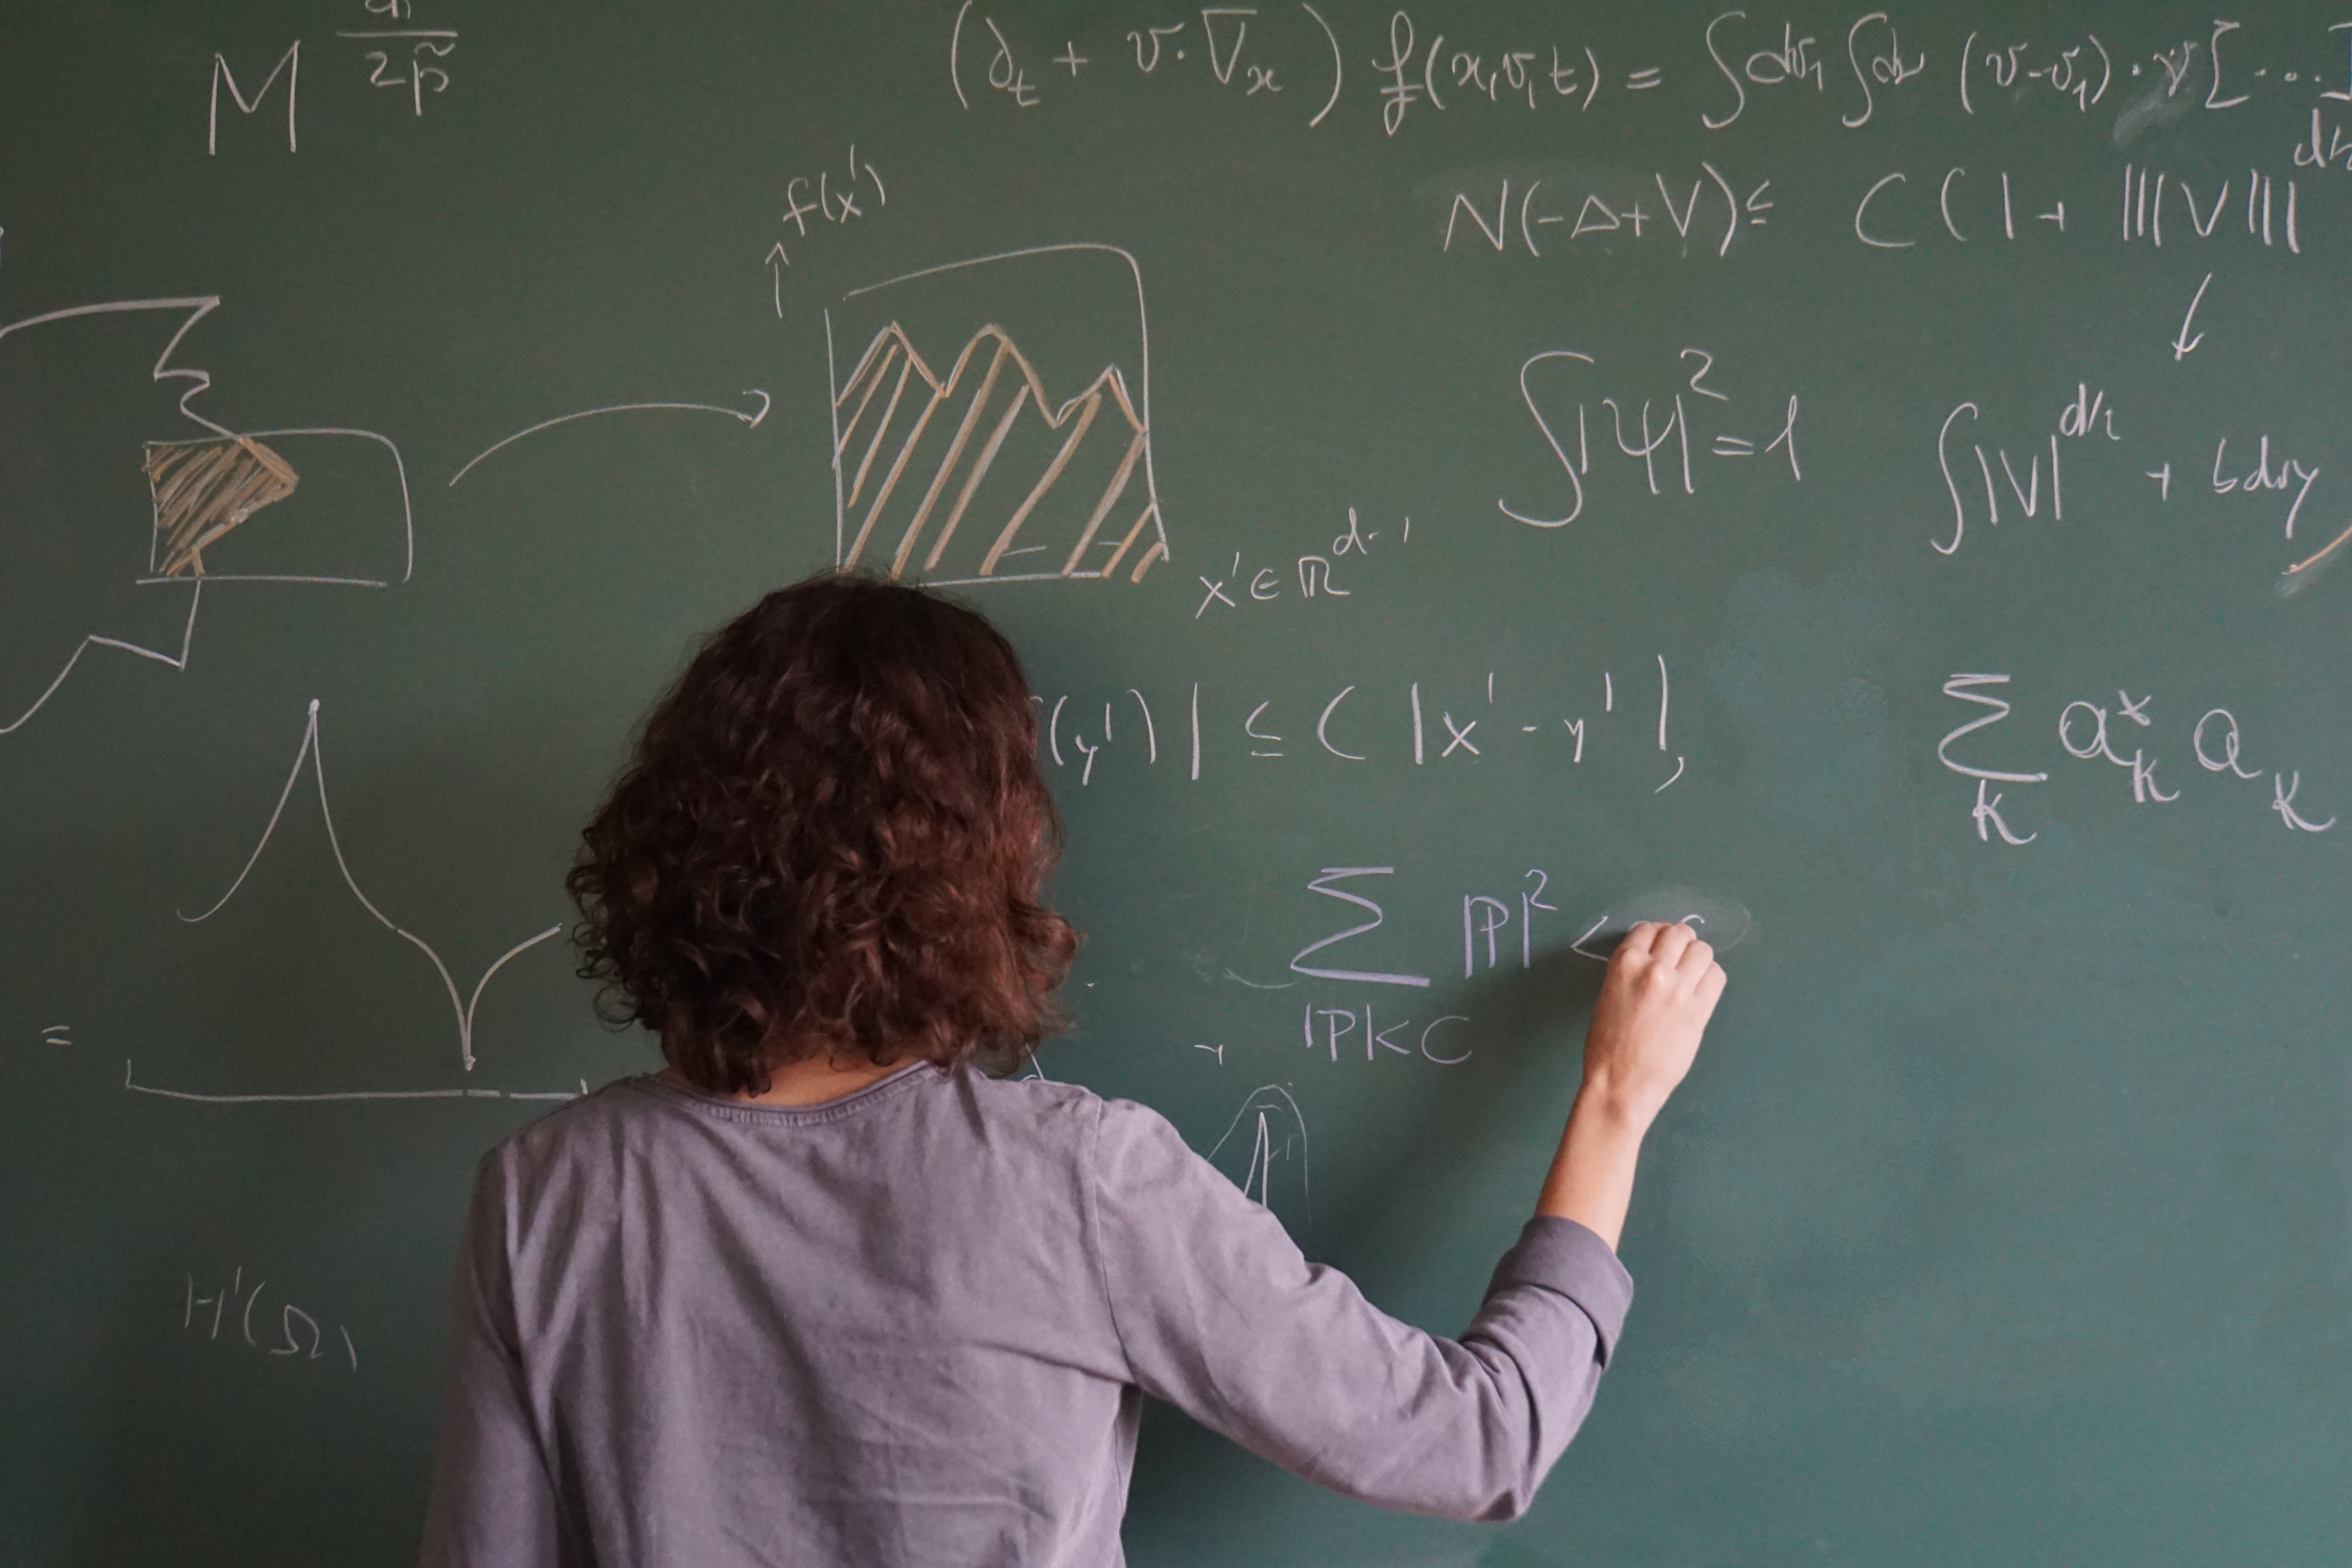 M 2p̃
(∂_t + v·∇_x) f(x,v,t) = ∫dv₁∫dν (v-v₁)·ν[...]
f(x')
N(-Δ+V) ≤ C(1+ |||V|||
∫|ψ|²=1
∫|V|^{d/2} + bdry
x' ∈ ℝ^{d-1}
(y')| ≤ C|x'-y'|,
Σ_k a*_k a_k
Σ_{|P|<C} |P|² <
=
H¹(Ω)